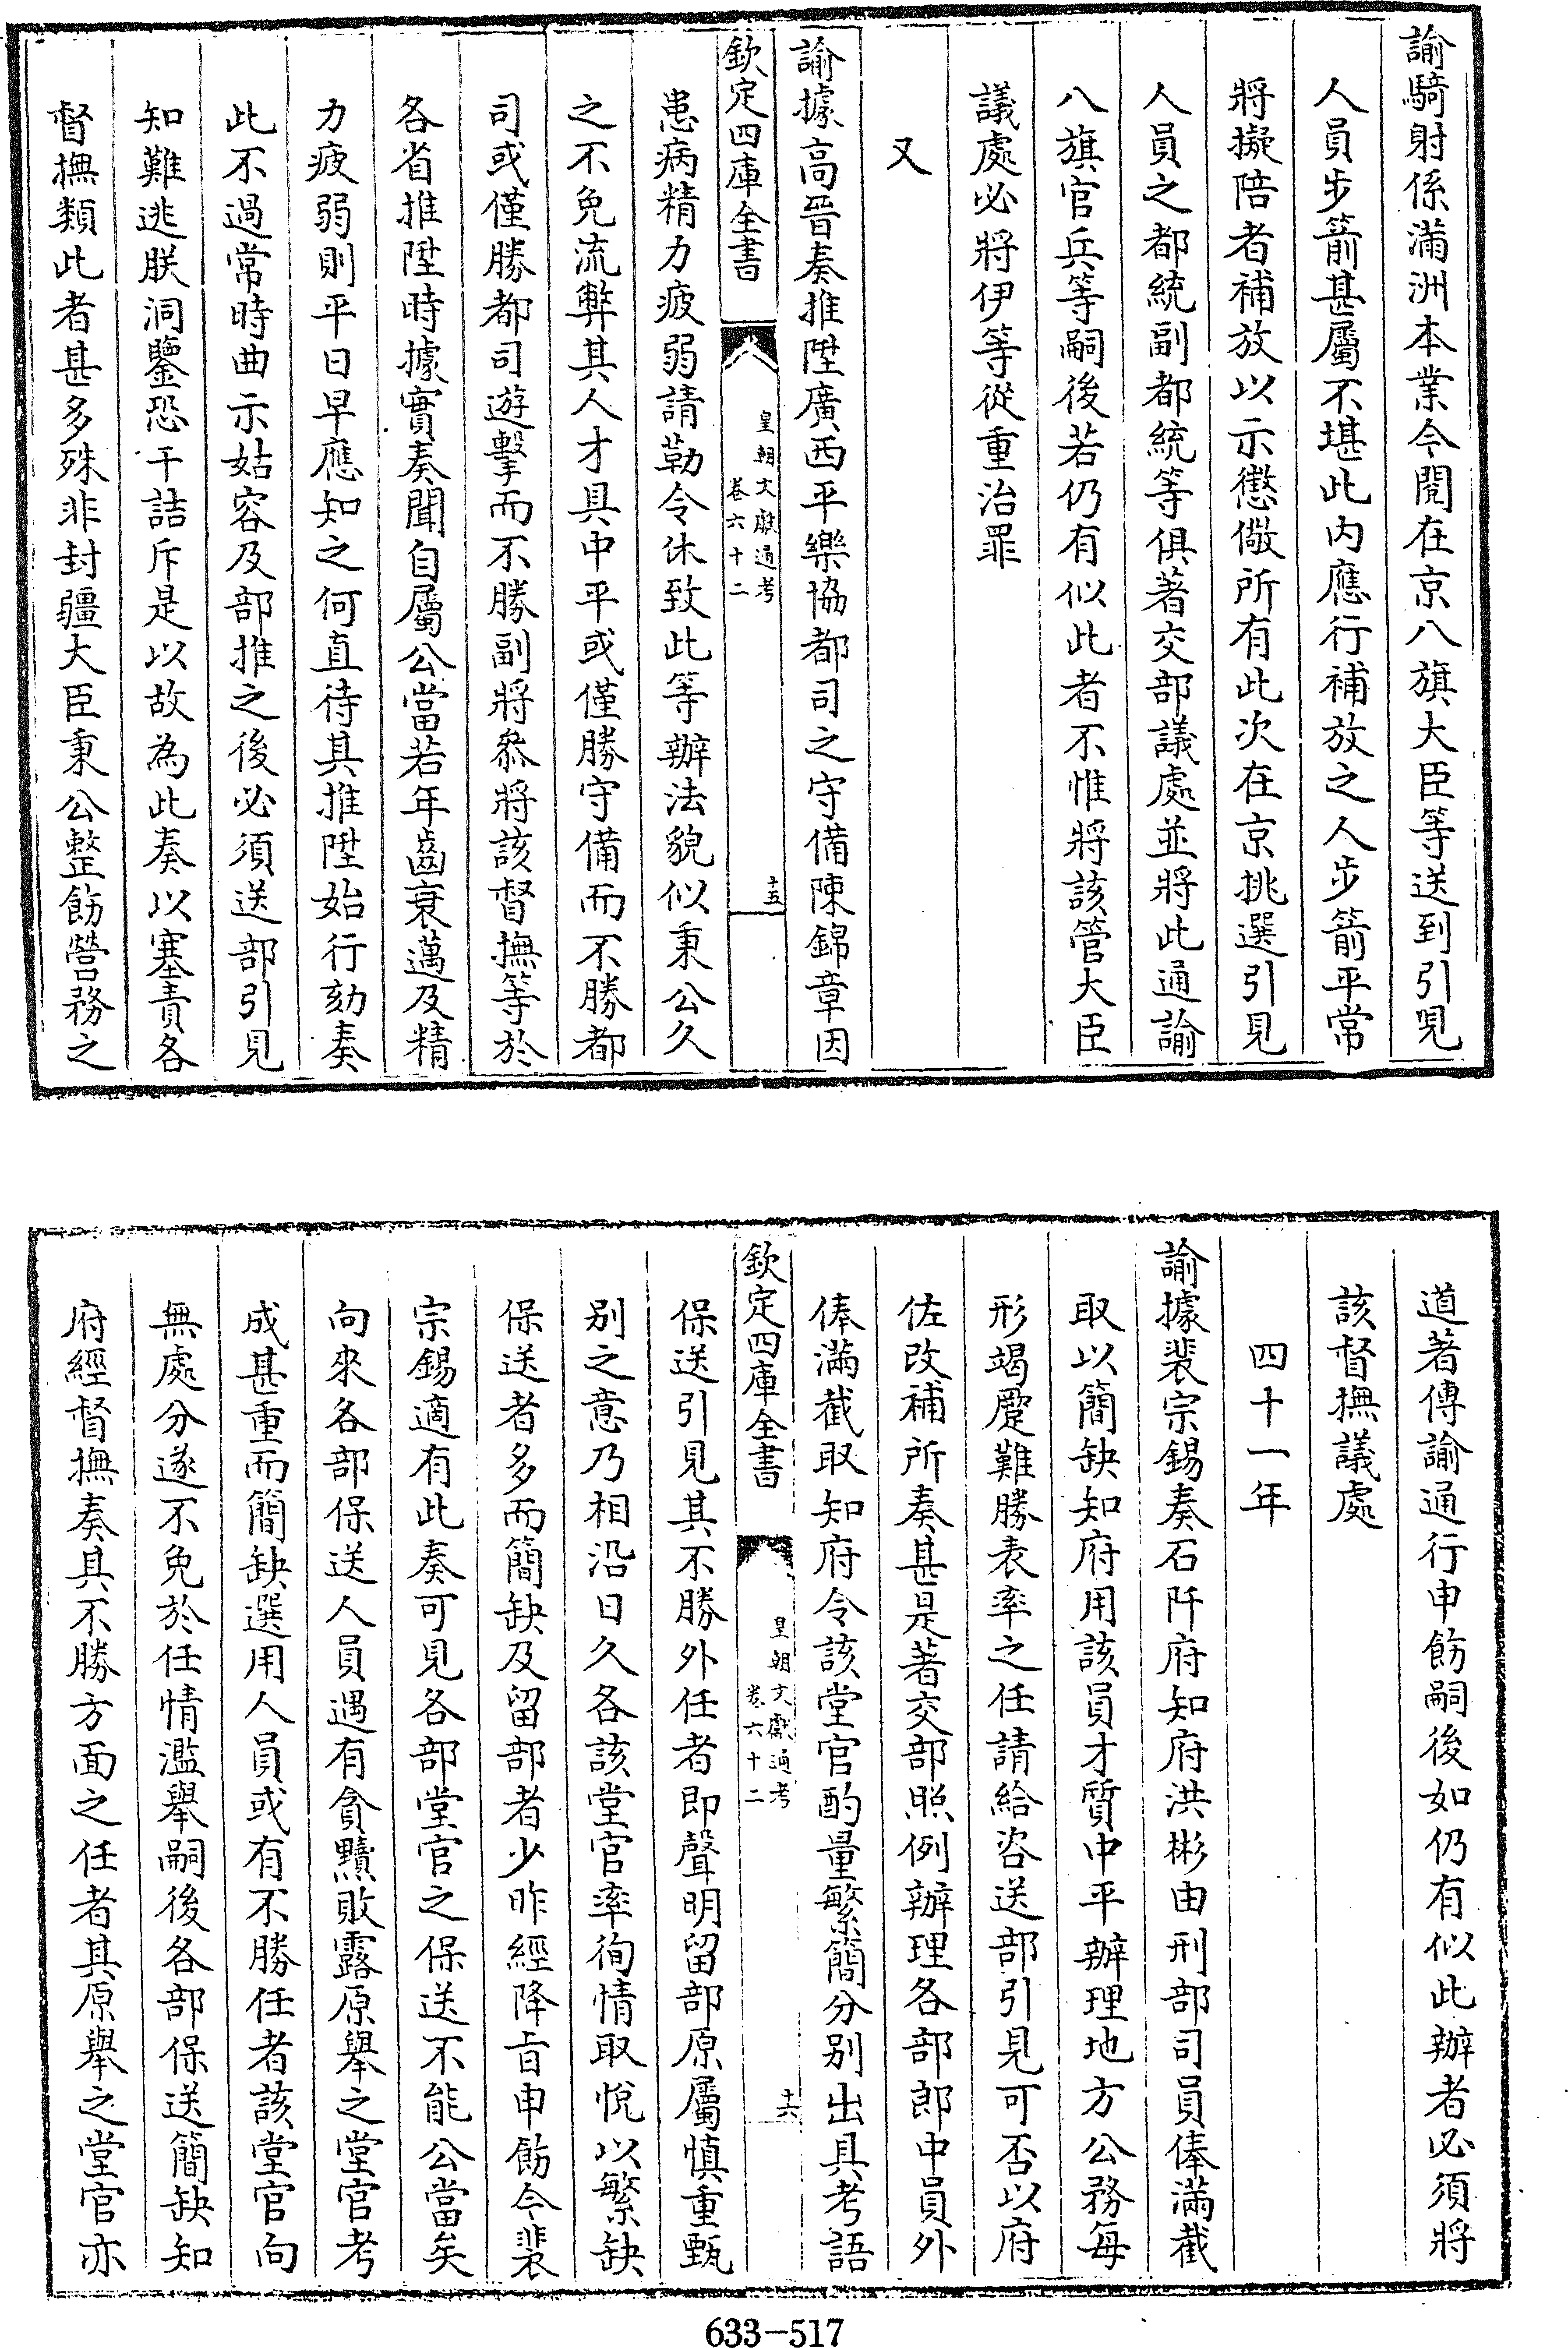 諭騎射係滿洲本業今閱在京八旗大臣等送到引見
人員步箭甚屬不堪此內應行補放之人步箭平常
將擬陪者補放以示懲儆所有此次在京挑選引見
人員之都統副都統等俱著交部議處並將此通諭
八旗官兵等嗣後若仍有似此者不惟將該管大臣
議處必將伊等從重治罪
又
諭據高晉奏推陞廣西平樂協都司之守備陳錦章因
欽定四庫全書
皇朝文獻通考
卷六十二
十五
患病精力疲弱請勒令休致此等辦法貌似秉公久
之不免流弊其人才具中平或僅勝守備而不勝都
司或僅勝都司遊擊而不勝副將叅將該督撫等於
各省推陞時據實奏聞自屬公當若年齒衰邁及精
力疲弱則平日早應知之何直待其推陞始行劾奏
此不過常時曲示姑容及部推之後必須送部引見
知難逃朕洞鑒恐干詰斥是以故為此奏以塞責各
督撫類此者甚多殊非封疆大臣秉公整飭營務之
道著傳諭通行申飭嗣後如仍有似此辦者必須將
該督撫議處
四十一年
諭據裴宗錫奏石阡府知府洪彬由刑部司員俸滿截
取以簡缺知府用該員才質中平辦理地方公務每
形竭蹷難勝表率之任請給咨送部引見可否以府
佐改補所奏甚是著交部照例辦理各部郎中員外
俸滿截取知府令該堂官酌量繁簡分別出具考語
欽定四庫全書
皇朝文獻通考
卷六十二
十六
保送引見其不勝外任者即聲明留部原屬慎重甄
別之意乃相沿日久各該堂官率徇情取悅以繁缺
保送者多而簡缺及留部者少昨經降旨申飭今裴
宗錫適有此奏可見各部堂官之保送不能公當矣
向來各部保送人員遇有貪黷敗露原舉之堂官考
成甚重而簡缺選用人員或有不勝任者該堂官向
無處分遂不免於任情濫舉嗣後各部保送簡缺知
府經督撫奏具不勝方面之任者其原舉之堂官亦
633-517